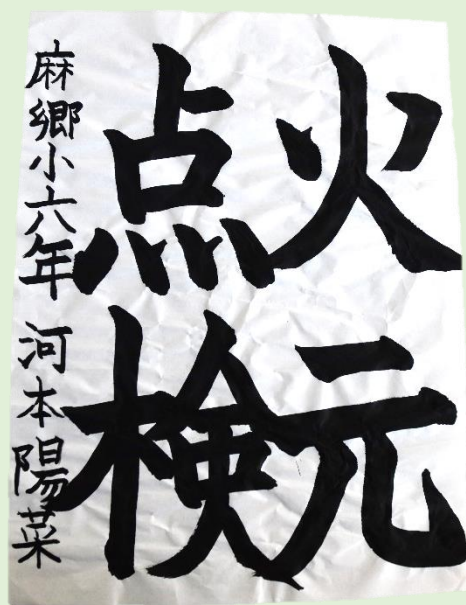 火元
点検
麻郷小六年 河本陽菜